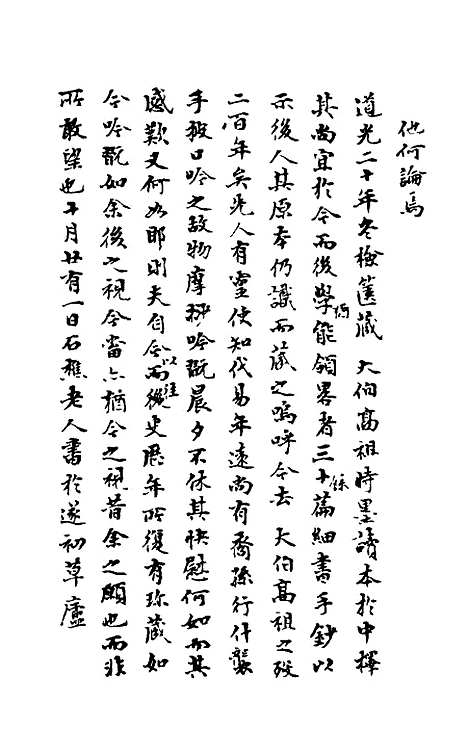 他何論焉
道光二十年冬檢篋藏 大伯高祖時墨讀本於中擇
其尚宜於今而後學倘能領畧者三十餘篇細書手鈔以
示後人其原本仍識而藏之嗚呼今去 大伯高祖之歿
二百年矣先人有靈使知代易年遠尚有裔孫行什襲
手披口吟之故物摩挲吟翫晨夕不休其快慰何如而其
感歎又何如耶則夫自今以往而後更歷年所復有珍藏如
今吟翫如余後之視今當亦猶今之視昔余之願也而非
所敢望也十月廿有一日石樵老人書於遂初草廬